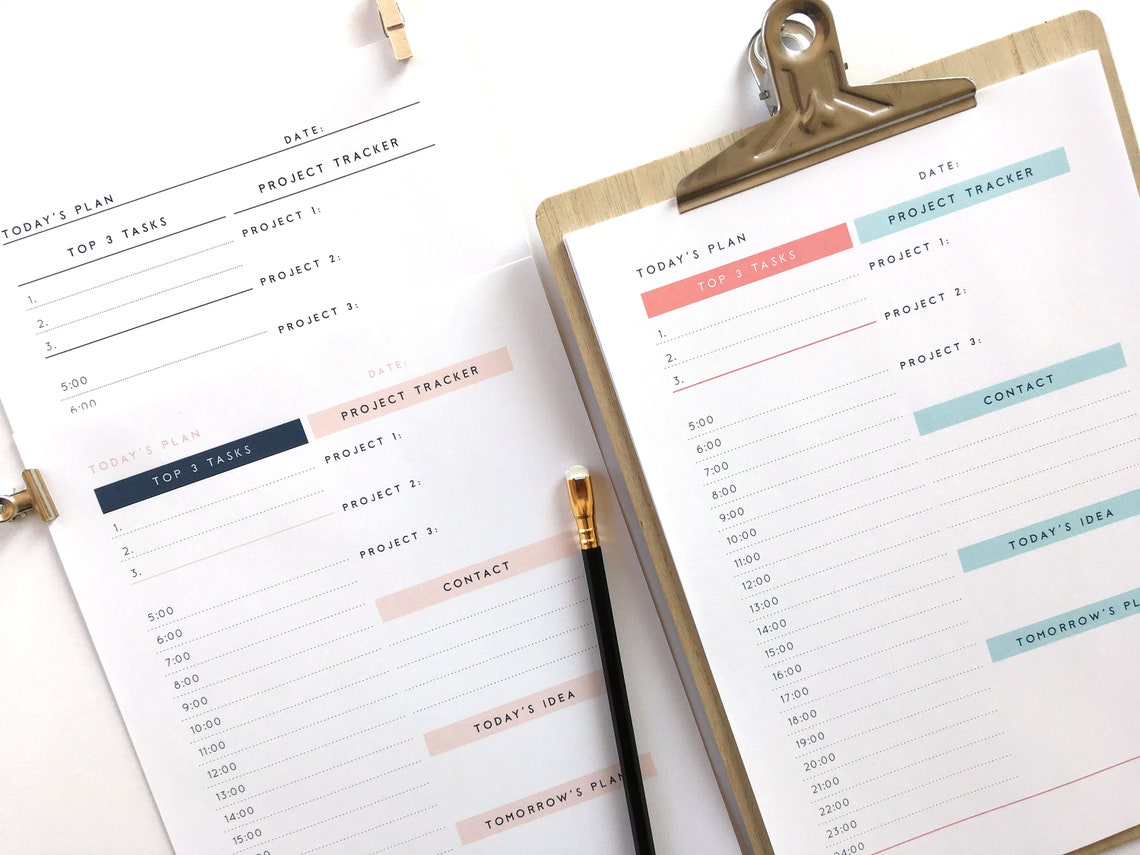 DATE:
TODAY'S PLAN
TOP 3 TASKS
PROJECT TRACKER
1.
2.
3.
PROJECT 1:
PROJECT 2:
PROJECT 3:
5:00
6:00
DATE:
TODAY'S PLAN
TOP 3 TASKS
PROJECT TRACKER
1.
2.
3.
PROJECT 1:
PROJECT 2:
PROJECT 3:
5:00
6:00
7:00
8:00
9:00
10:00
11:00
12:00
13:00
14:00
15:00
16:00
CONTACT
TODAY'S IDEA
TOMORROW'S PLAN
DATE:
TODAY'S PLAN
TOP 3 TASKS
PROJECT TRACKER
1.
2.
3.
PROJECT 1:
PROJECT 2:
PROJECT 3:
5:00
6:00
7:00
8:00
9:00
10:00
11:00
12:00
13:00
14:00
15:00
16:00
17:00
18:00
19:00
20:00
21:00
22:00
23:00
24:00
CONTACT
TODAY'S IDEA
TOMORROW'S PLA